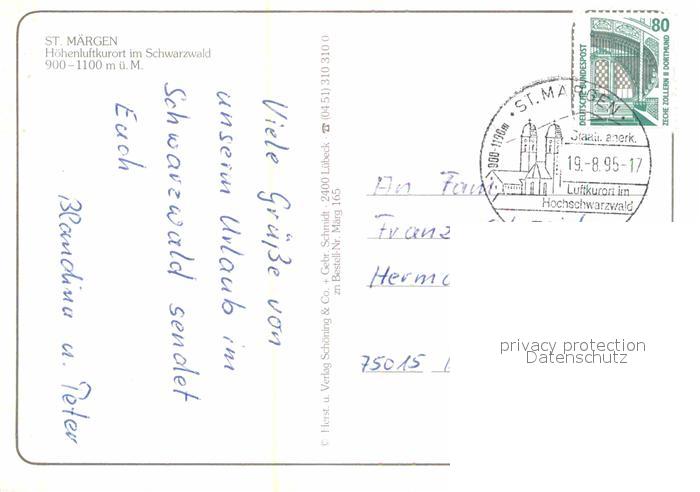 ST. MÄRGEN
Höhenluftkurort im Schwarzwald
900–1100 m ü. M.
Viele Grüße von
unserm Urlaub im
Schwarzwald sendet
Euch
Blandina u. Peter
© Herst. u. Verlag Schöning & Co. + Gebr. Schmidt · 2400 Lübeck ☎ (04 51) 310 310 0
zn Bestell-Nr. Märg 165
80
DEUTSCHE BUNDESPOST
ZECHE ZOLLERN II DORTMUND
· ST. MÄRGEN ·
900-1100m
Staatl. anerk.
19.-8.95-17
Luftkurort im
Hochschwarzwald
An Fam
Franz
Herma
75015
privacy protection
Datenschutz